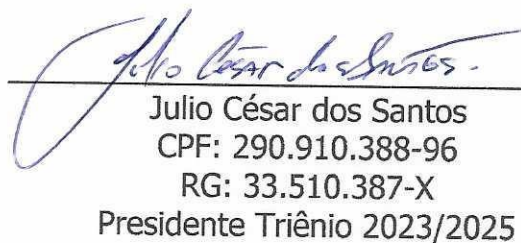 Julio César dos Santos.
Julio César dos Santos
CPF: 290.910.388-96
RG: 33.510.387-X
Presidente Triênio 2023/2025